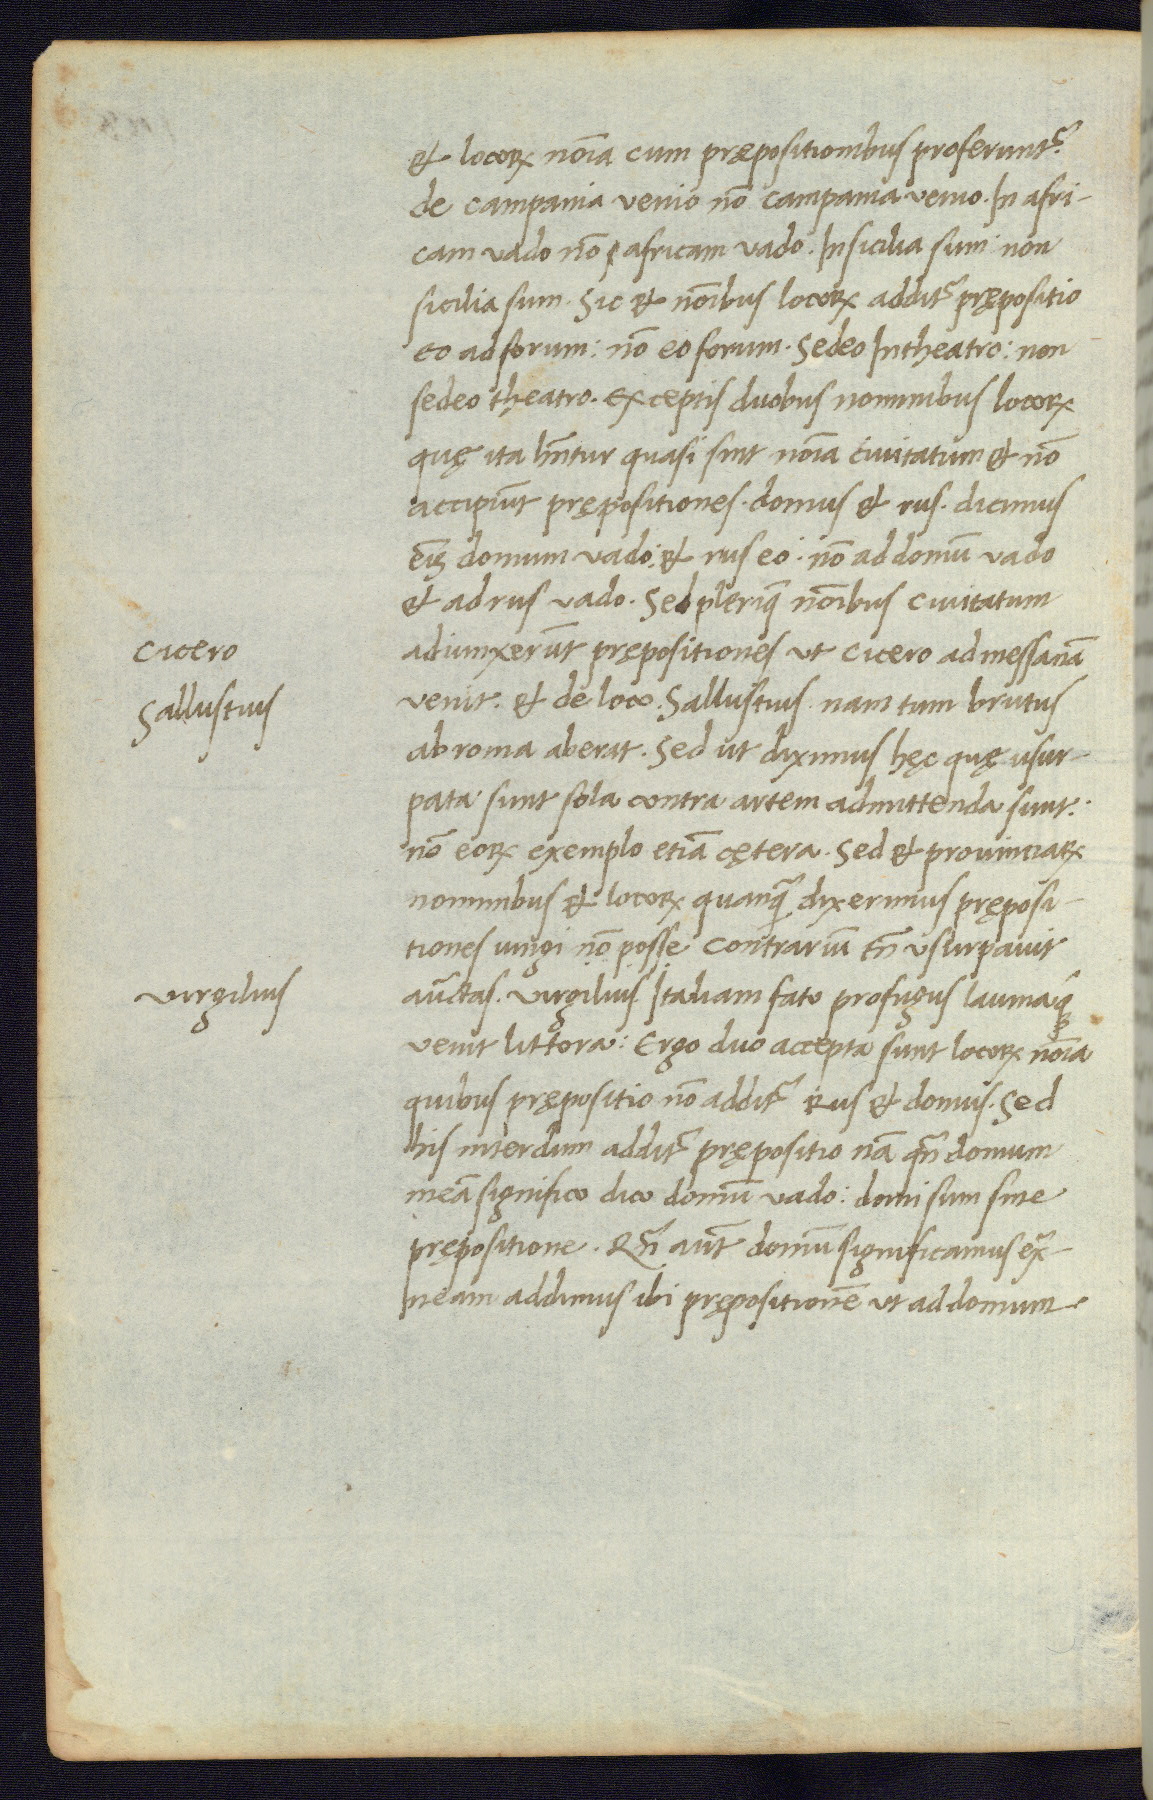 & locoꝝ noīa cum prępositionibus proferunt᷑
de campania venio nō campania venio. In afri-
cam vado nō africam vado. In sicilia sum: non
sicilia sum. Sic & noībus locoꝝ addit᷑ prępositio
eo ad forum: nō eo forum. Sedeo In theatro: non
sedeo theatro. exceptis duobus nominibus locoꝝ
quę ita hn̄tur quasi sint noīa Ciuitatum & nō
accipiūt prępositiones. domus & rus. dicimus
domum vado: & rus eo: nō ad domū vado
& ad rus vado. Sed pleriq̄ noībus ciuitatum
Cicero
adiunxerūt prępositiones ut Cicero ad messanā
venit. & de loco. Sallustius nam tum brutus
Sallustius
ab roma aberat. Sed ut diximus hęc quę usur-
pata sunt sola contra artem admittenda sunt:
nō eoꝝ exemplo etiā cętera. Sed & prouinciaꝝ
nominibus & locoꝝ quanq̄ dixerimus pręposi-
tiones iungi nō posse contrariū tn̄ usurpauit
Virgilius
auc̄tas. Virgilius Italiam fato profugus lauinaq̄
venit littora: Ergo duo accepta sunt locoꝝ noīa
quibus prępositio nō addit᷑ Rus & domus. Sed
his interdum addit᷑ prępositio nā qn̄ domum
meā significo dico domū vado: domi sum sine
prępositione. Qn̄ aūt domū significamus ex̄-
neam addimus ibi prępositionē ut ad domum